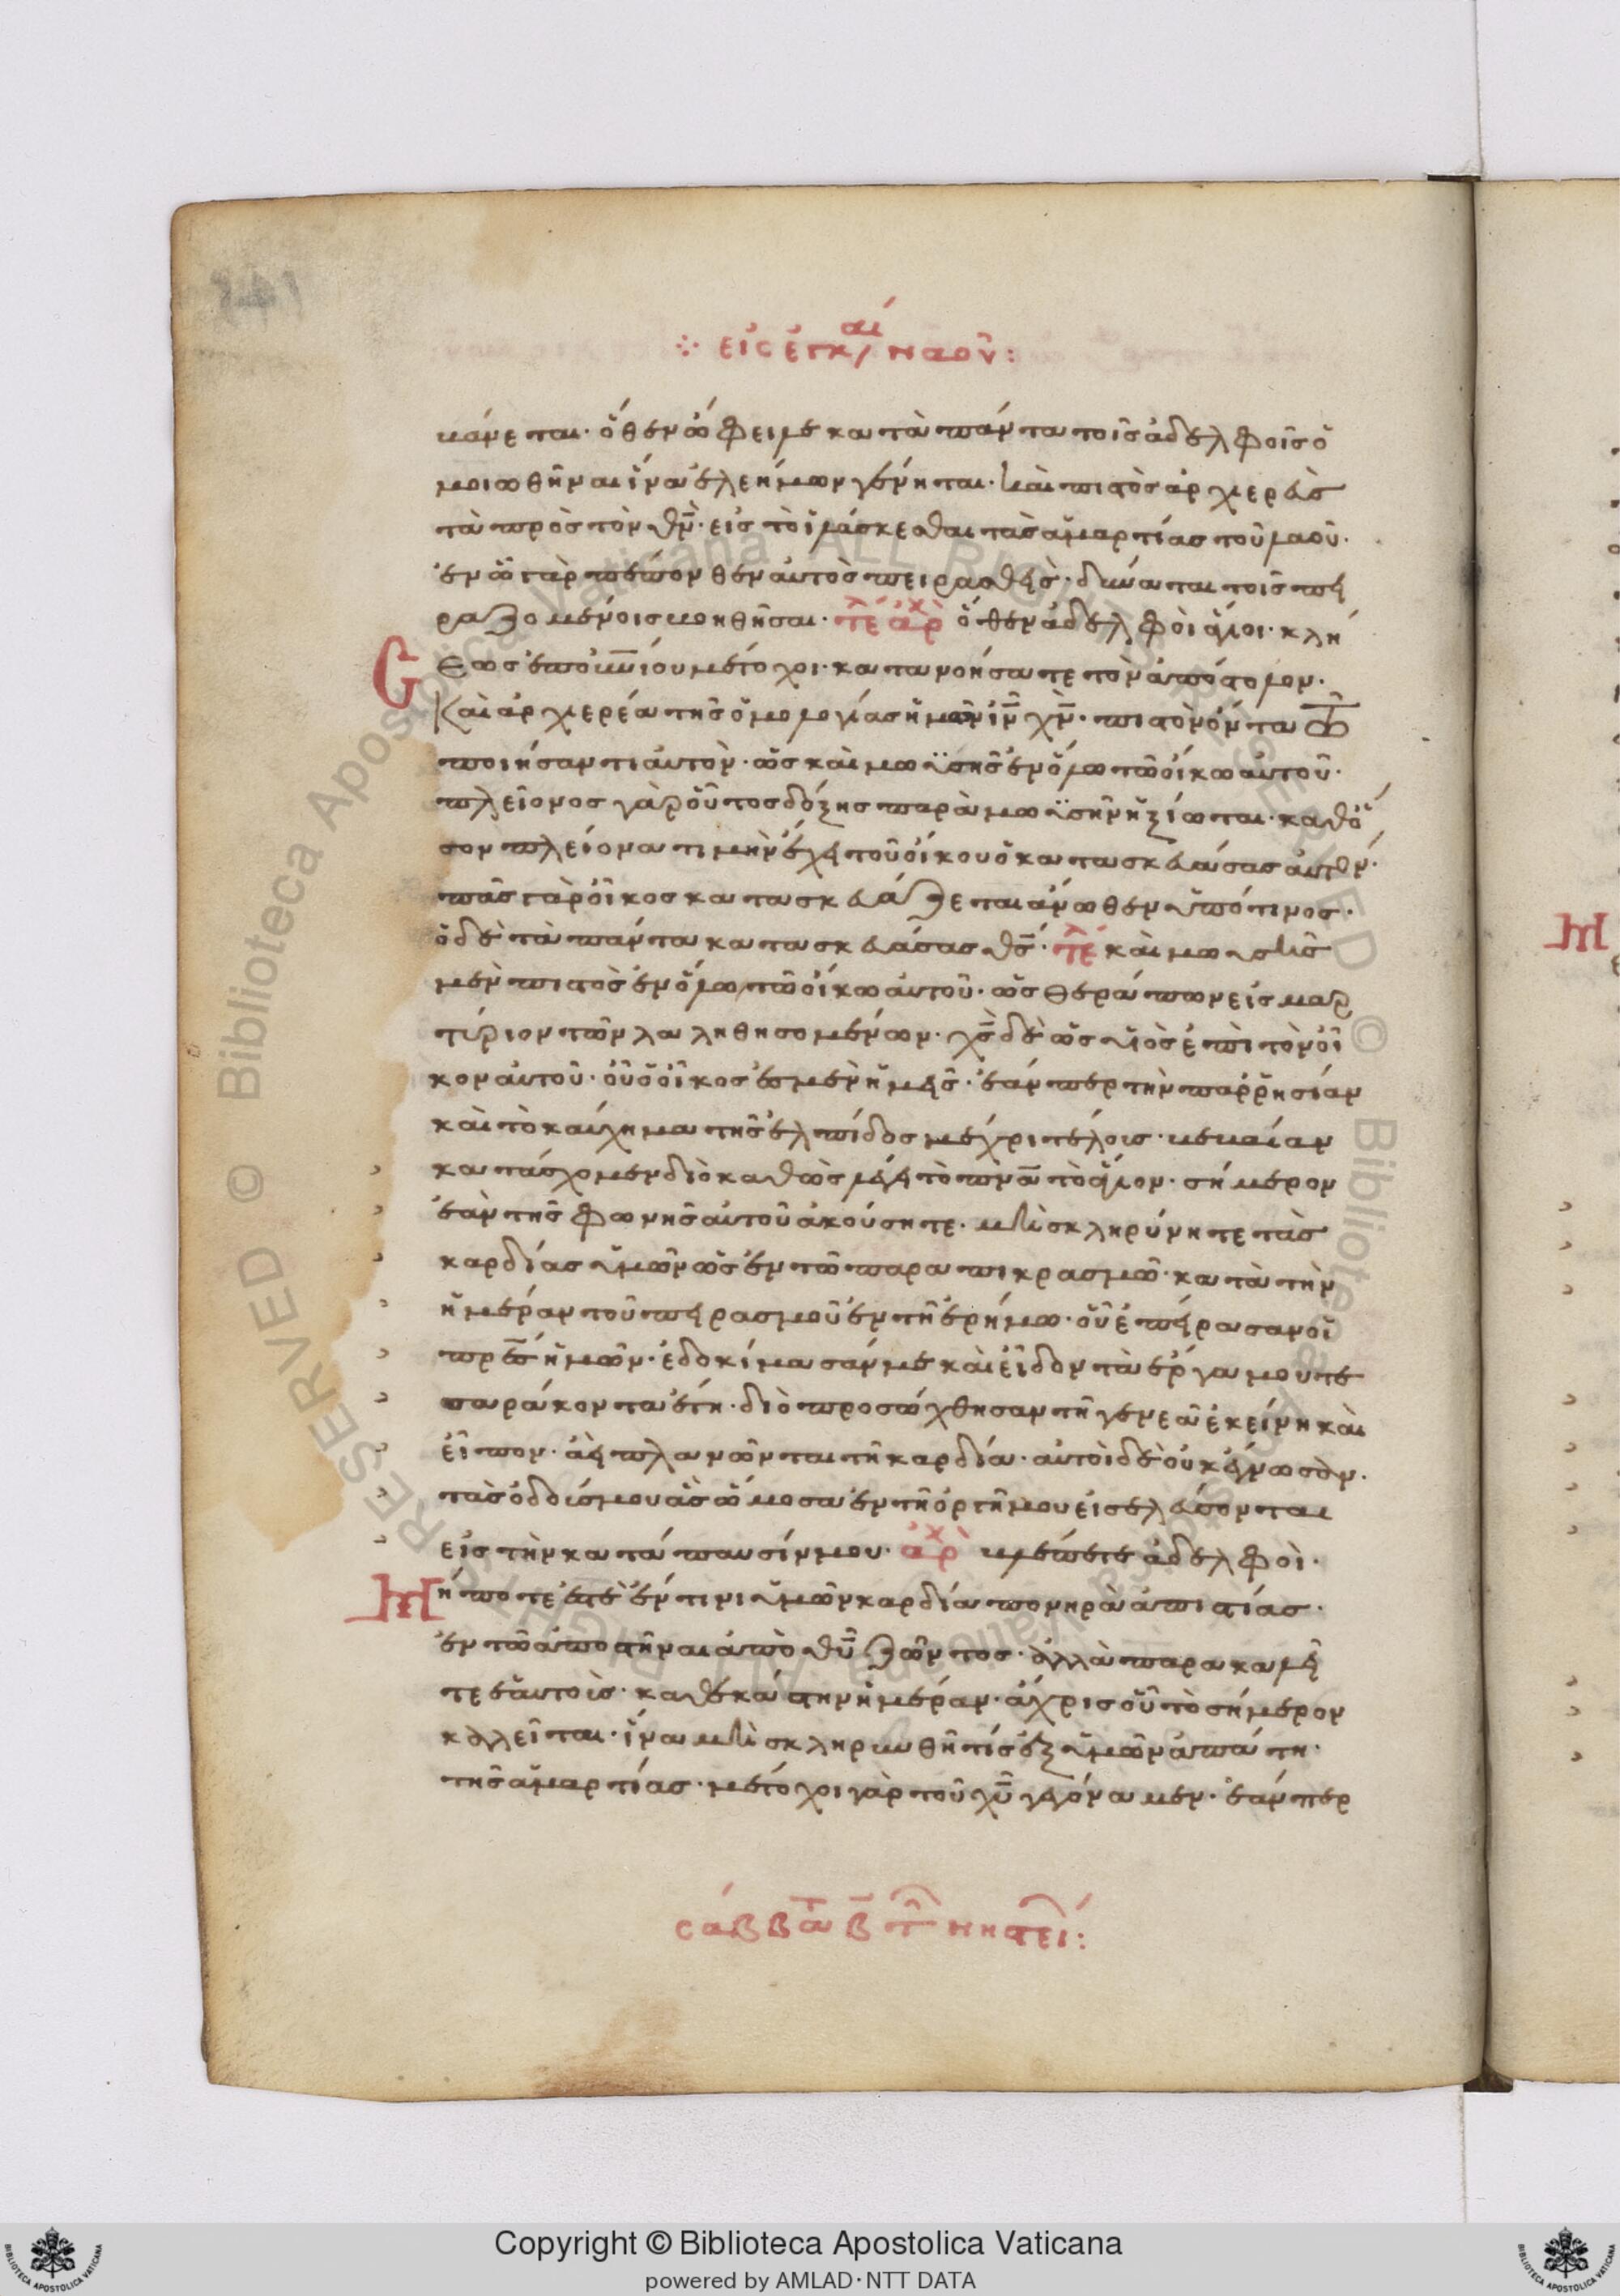 εἰς ἐγκαί ναοῦ:
βάνεται· ὅθεν ὤφειλε κατὰ πάντα τοῖς ἀδελφοῖς ὁ
μοιωθῆναι ἵνα ἐλεήμων γένηται· καὶ πιστὸς ἀρχιερεὺς
τὰ πρὸς τὸν θν· εἰς τὸ ἱλάσκεσθαι τὰς ἁμαρτίας τοῦ λαοῦ·
ἐν ᾧ γὰρ πέπονθεν αὐτὸς πειρασθεὶς· δύναται τοῖς πει
ραζομένοις βοηθῆσαι· τέλ ἀρχ ὅθεν ἀδελφοὶ ἅγιοι· κλή
σεως ἐπουνίου μέτοχοι· κατανοήσατε τὸν ἀπόστολον·
Καὶ ἀρχιερέα τῆς ὁμολογίας ἡμῶν ιν χν· πιστὸν ὄντα τῶ
ποιήσαντι αὐτὸν· ὡς καὶ μωϋσῆς ἐν ὅλω τῶ οἴκω αὐτοῦ·
πλεῖονος γὰρ οὗτος δόξης παρὰ μωϋσῆν ἠξίωται· καθό
σον πλείονα τιμὴν ἔχει τοῦ οἴκου ὁ κατασκευάσας αὐτόν·
πᾶς γὰρ οἶκος κατασκευάζεται ἄνωθεν ὑπό τινος·
ὁ δὲ τὰ πάντα κατασκευάσας θς· τέλ καὶ μωυσῆς
μὲν πιστὸς ἐν ὅλω τῶ οἴκω αὐτοῦ· ὡς θεράπων εἰς μαρ
τύριον τῶν λαληθησομένων· χς δὲ ὡς υἱὸς ἐπὶ τὸν οἶ
κον αὐτοῦ· οὗ οἶκος ἐσμὲν ἡμεῖς· ἐάνπερ τὴν παρρησίαν
καὶ τὸ καύχημα τῆς ἐλπίδος μέχρι τέλους· βεβαίαν
κατάσχομεν διὸ καθὼς λέγει τὸ πνα τὸ ἅγιον· σήμερον
ἐὰν τῆς φωνῆς αὐτοῦ ἀκούσητε· μὴ σκληρύνητε τὰς
καρδίας ὑμῶν ὡς ἐν τῶ παραπικρασμῶ· κατὰ τὴν
ἡμέραν τοῦ πειρασμοῦ ἐν τῆ ἐρήμω· οὗ ἐπείρασαν οἱ
πρες ἡμῶν· ἐδοκίμασάν με καὶ εἶδον τὰ ἔργα μου τε
σαράκοντα ἔτη· διὸ προσώχθησαν τῆ γενεᾶ ἐκείνη καὶ
εἶπον· ἀεὶ πλανῶνται τῆ καρδία· αὐτοὶ δὲ οὐκ ἔγνωσαν·
τὰς ὁδούς μου ὡς ὤμοσα ἐν τῆ ὀργῆ μου εἰσελεύσονται
εἰς τὴν κατάπαυσίν μου· ἀρχ βλέπετε ἀδελφοὶ·
Μήποτε ἔσται ἔν τινι ὑμῶν καρδία πονηρὰ ἀπιστίας·
ἐν τῶ ἀποστῆναι ἀπὸ θυ ζῶντος· ἀλλὰ παρακαλεῖ
τε ἑαυτοὺς· καθ ἑκάστην ἡμέραν· ἄχρις οὗ τὸ σήμερον
καλεῖται· ἵνα μὴ σκληρυνθῆ τίς ἐξ ὑμῶν ἀπάτη·
τῆς ἁμαρτίας· μέτοχοι γὰρ τοῦ χυ γεγόναμεν· ἐάνπερ
σάββα β τ νηστεί:
Copyright © Biblioteca Apostolica Vaticana
powered by AMLAD·NTT DATA